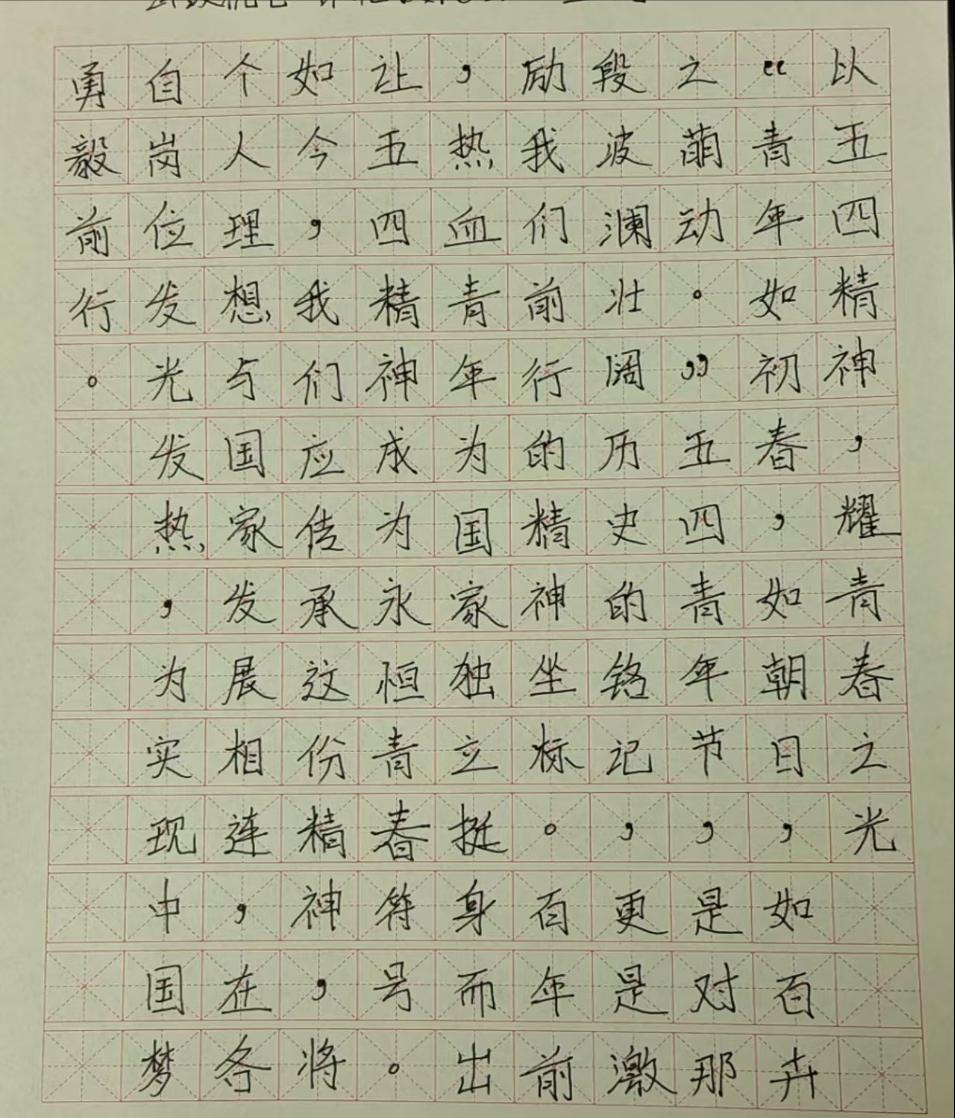 以五四精神，耀青春之光
“青年如初春，如朝日，如百卉
之萌动。”五四青年节，是对那
段波澜壮阔历史的铭记，更是激
励我们前行的精神坐标。百年前
，热血青年为国家独立挺身而出
让五四精神成为永恒青春符号。
如今，我们应传承这份精神，将
个人理想与国家发展相连，在各
自岗位发光发热，为实现中国梦
勇毅前行。